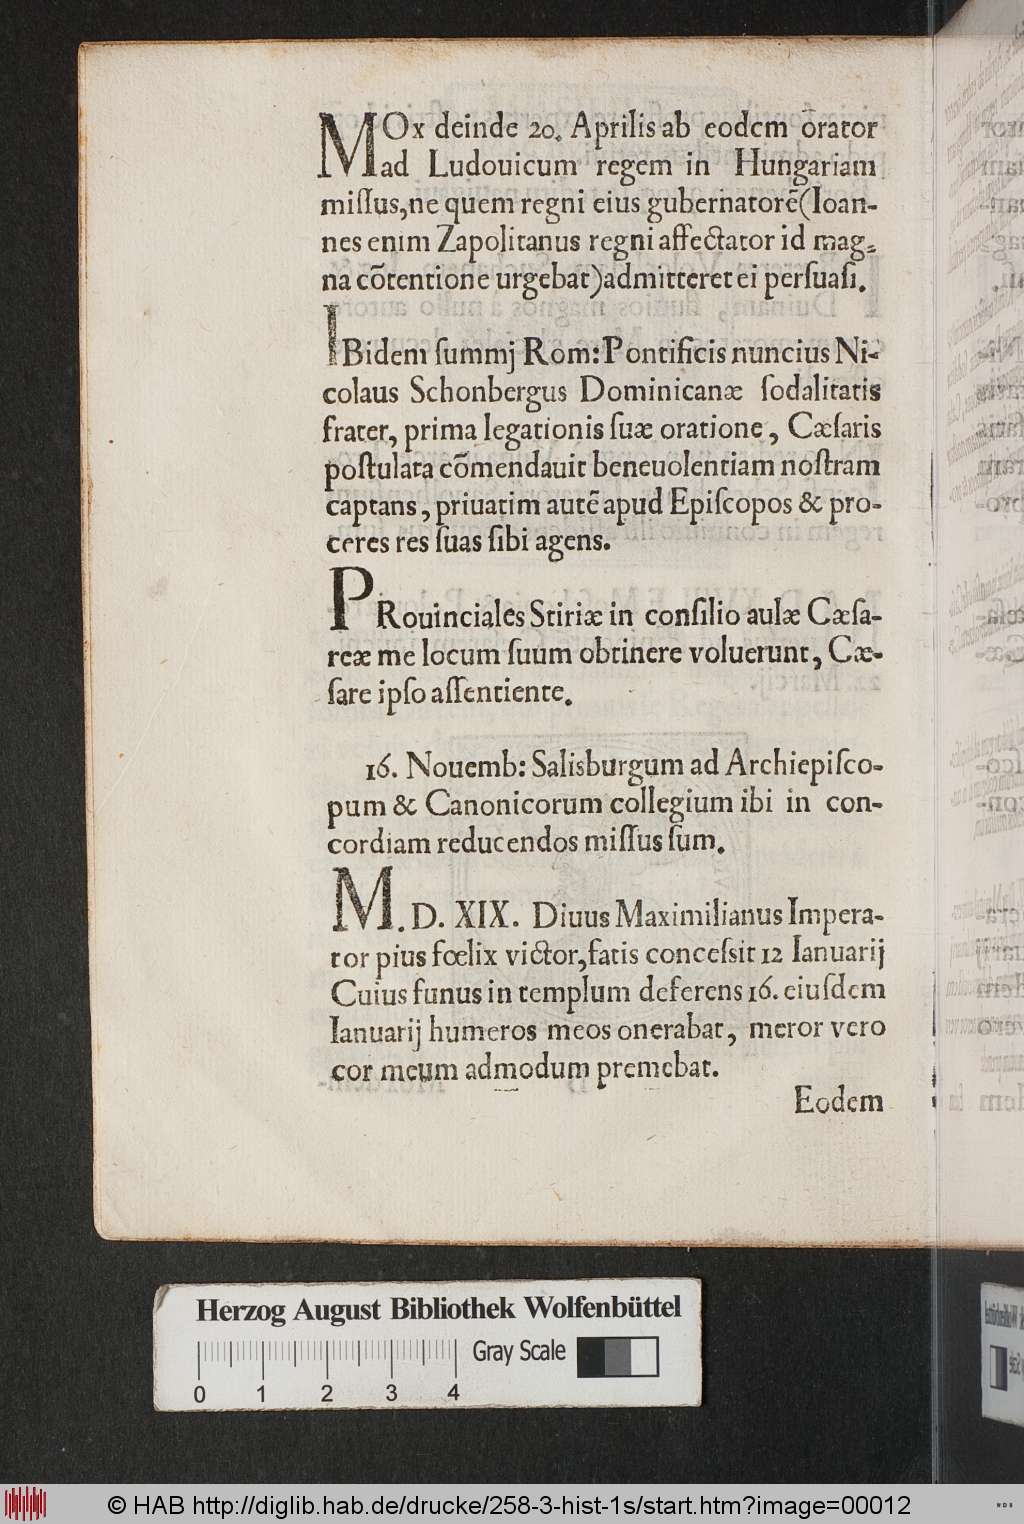 MOx deinde 20. Aprilis ab eodem orator
ad Ludouicum regem in Hungariam
miſſus,ne quem regni eius gubernatorē(Ioan-
nes enim Zapolitanus regni affectator id mag-
na cōtentione urgebat)admitteret ei perſuaſi.
IBidem ſummj Rom: Pontificis nuncius Ni-
colaus Schonbergus Dominicanæ ſodalitatis
frater, prima legationis ſuæ oratione, Cæſaris
poſtulata cōmendauit beneuolentiam noſtram
captans, priuatim autē apud Epiſcopos & pro-
ceres res ſuas ſibi agens.
PRouinciales Stiriæ in conſilio aulæ Cæſa-
reæ me locum ſuum obtinere voluerunt, Cæ-
ſare ipſo aſſentiente.
16. Nouemb: Salisburgum ad Archiepiſco-
pum & Canonicorum collegium ibi in con-
cordiam reducendos miſſus ſum.
M. D. XIX. Diuus Maximilianus Impera-
tor pius fœlix victor,fatis conceſsit 12 Ianuarij
Cuius funus in templum deferens 16. eiuſdem
Ianuarij humeros meos onerabat, meror vero
cor meum admodum premebat.
Eodem
Herzog August Bibliothek Wolfenbüttel
Gray Scale
0 1 2 3 4
© HAB http://diglib.hab.de/drucke/258-3-hist-1s/start.htm?image=00012